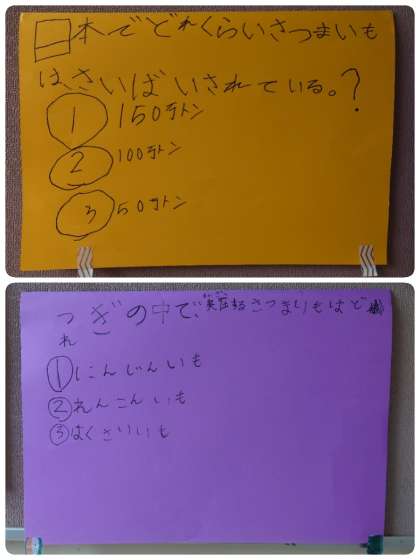 日本でどれくらいさつまいも
は、さいばいされている。?
① 150万トン
② 100万トン
③ 50万トン
つぎの中で、実在するさつまいもはど
れ
① にんじんいも
② れんこんいも
③ はくさいいも